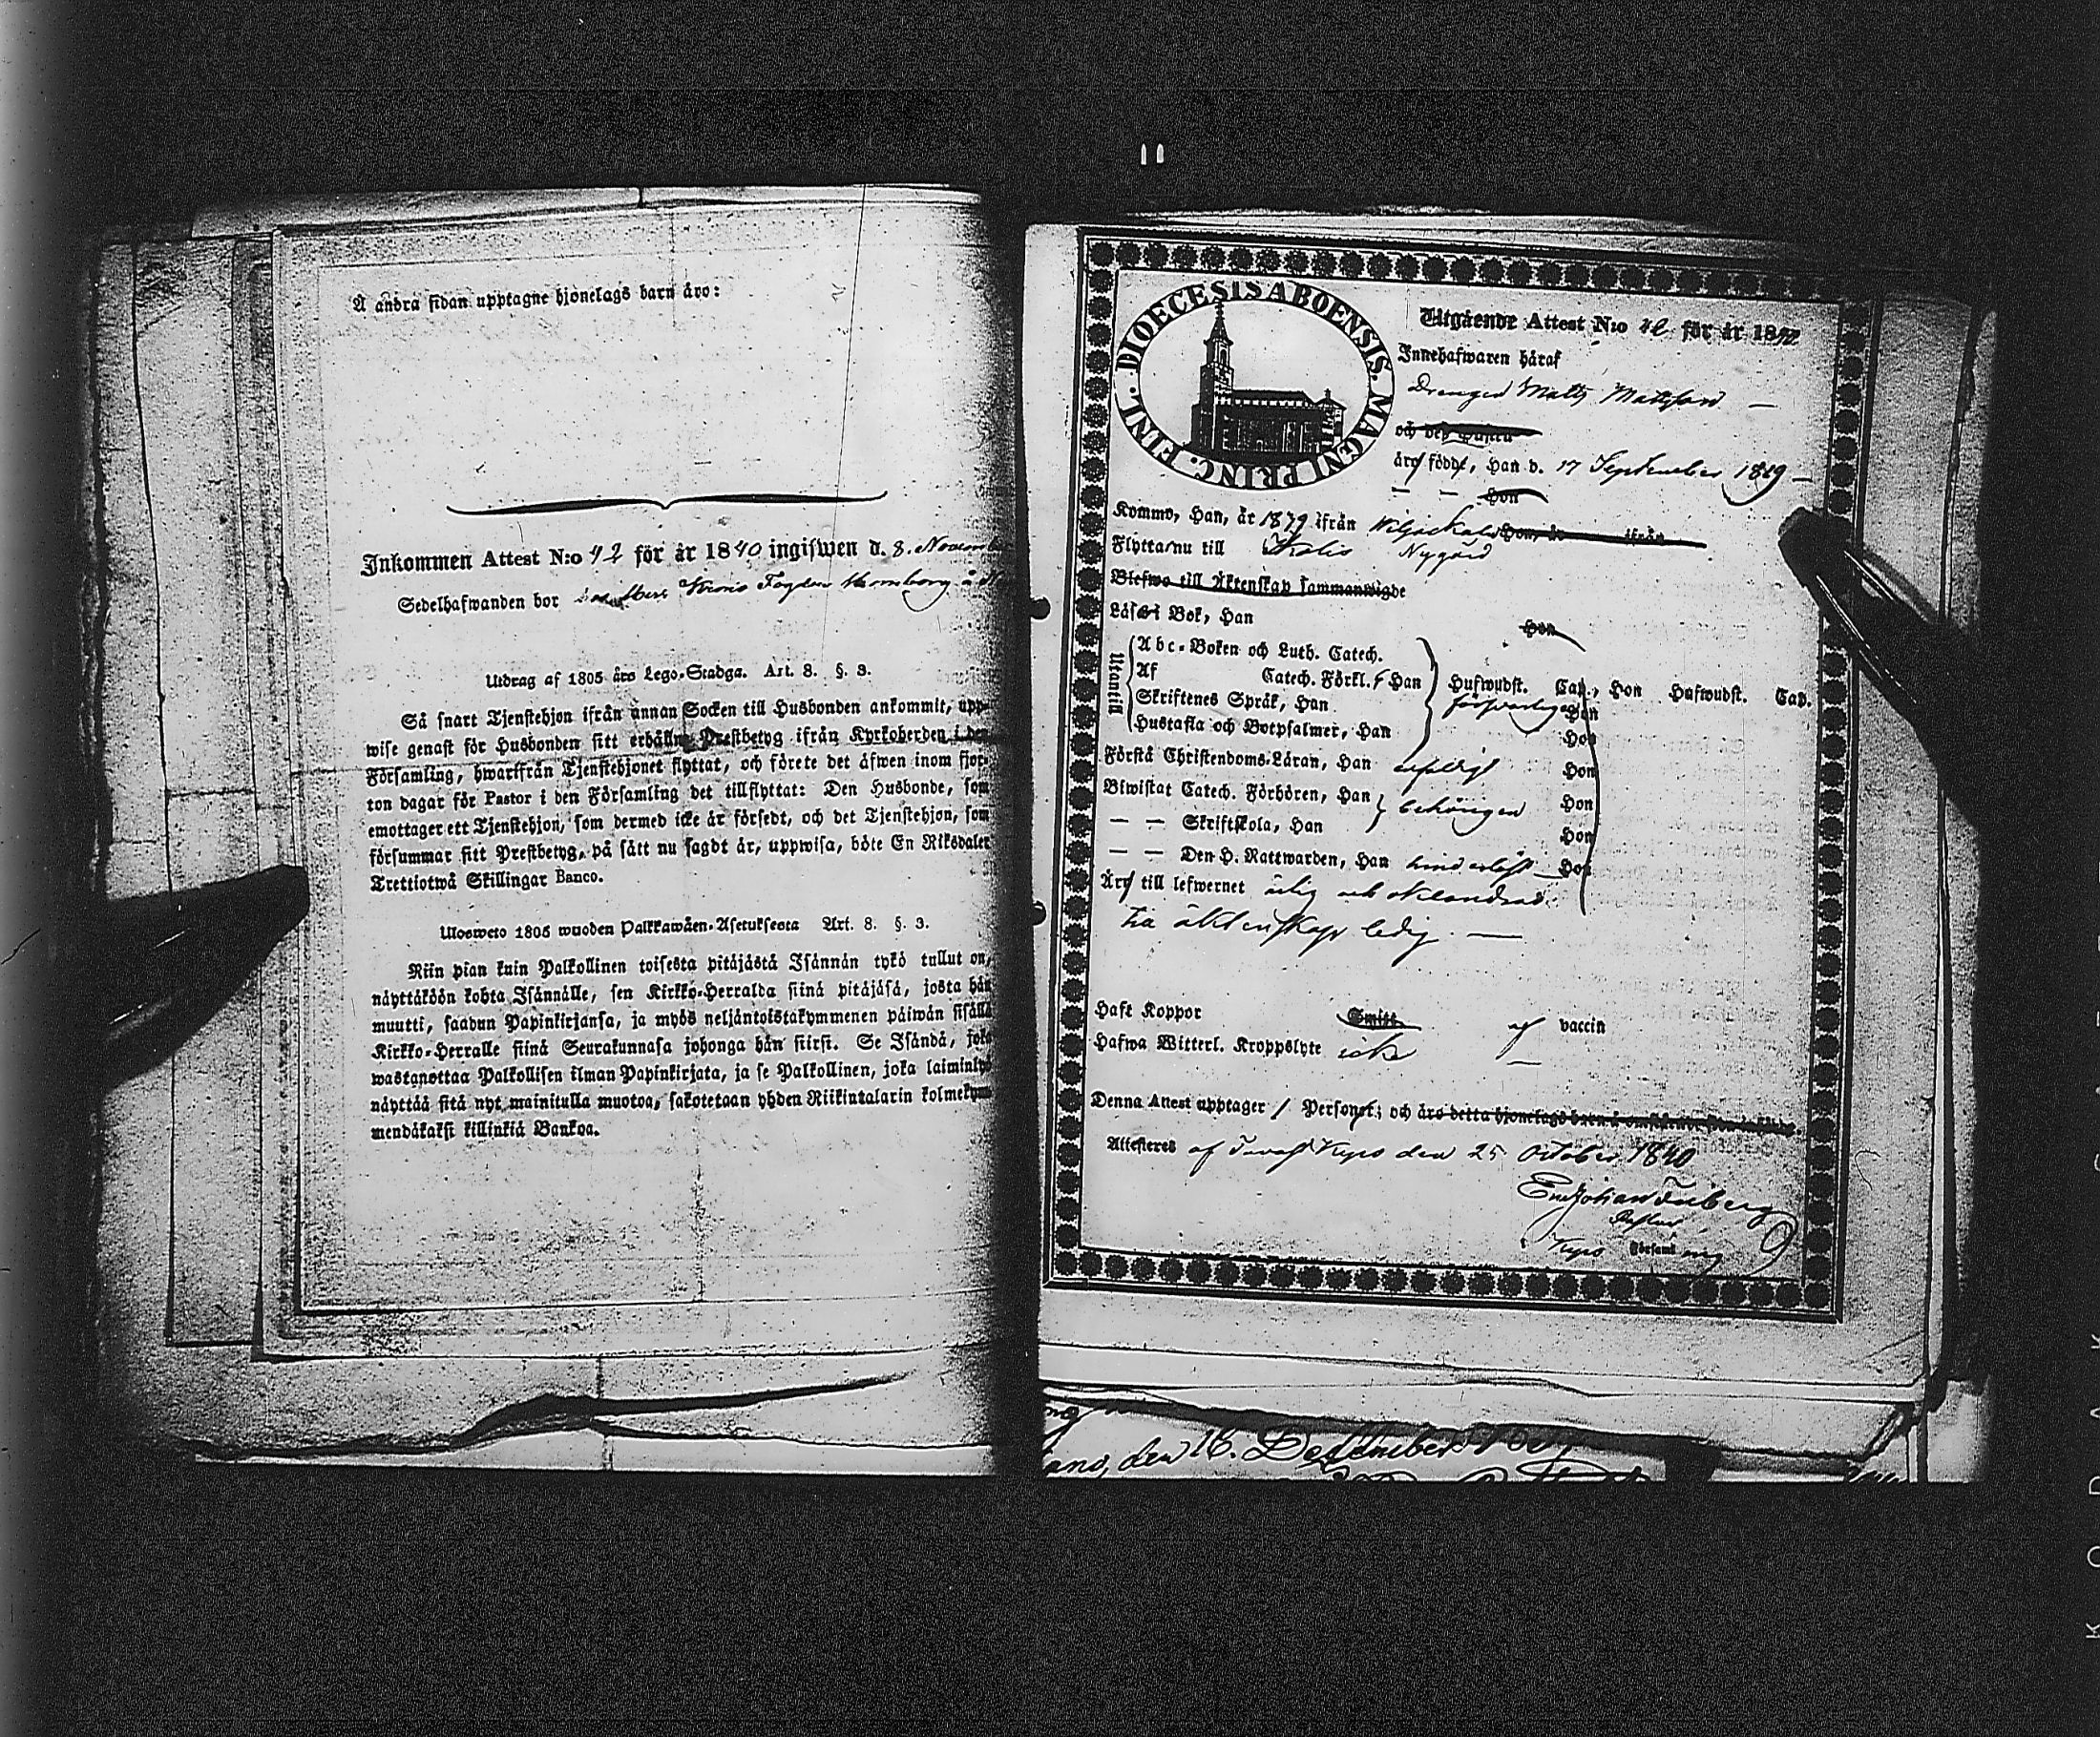 Å andra sidan upptagne hjonelags barn äro:
Inkommen Attest N:o 42 för år 1840 ingifwen d. 8. Novemb
Sedelhafwanden bor
Utdrag af 1805 års Lego-Stadga. Art. 8. §. 3.
Så snart Tjenstehjon ifrån annan Socken till Husbonden ankommit, upp-
wise genast för Husbonden sitt erhållne Prestbetyg ifrån Kyrkoherden i den
Församling, hwarifrån Tjenstehjonet flyttat, och förete det äfwen inom fjor-
ton dagar för Pastor i den Församling det tillflyttat: Den Husbonde, som
emottager ett Tjenstehjon, som dermed icke är försedt, och det Tjenstehjon, som
försummar sitt Prestbetyg, på sätt nu sagdt är, uppwisa, böte En Riksdaler
Trettiotwå Skillingar Banco.
Ulosweto 1805 wuoden Palkkawäen-Asetuksesta Art. 8. §. 3.
Niin pian kuin Palkollinen toisesta pitäjästä Isännän tykö tullut on,
näyttäköön kohta Isännälle, sen Kirkko-Herralda siinä pitäjäsä, josta hän
muutti, saadun Papinkirjansa, ja myös neljäntoistakymmenen päiwän sisällä
Kirkko-Herralle siinä Seurakunnasa johonga hän siirsi. Se Isändä, joka
wastanottaa Palkollisen ilman Papinkirjata, ja se Palkollinen, joka laiminlyö
näyttää sitä nyt mainitulla muotoa, sakotetaan yhden Riikintalarin kolmekym-
mendäkaksi killinkiä Bankoa.
FINL. DIOECESIS ABOENSIS. MAGNI PRINC.
Utgående Attest N:o 42 för år 1840
Innehafwaren häraf
Drengen Matts Mattsson —
och des Hustru
äro född, Han d. 17 September 1819 —
— — Hon
Kommo, Han, år 1839 ifrån Wiljakkala Hon, år ifrån
Flytta nu till Kalis Nygård
Blefwo till Äktenskap sammanwigde
Läse i Bok, Han Hon
Utantill
Abc-Boken och Luth. Catech.
Af Catech. Förkl., Han Hufwudst. Cap., Hon Hufwudst. Cap.
Skriftenes Språk, Han förswarligen Hon
Hustafla och Botpsalmer, Han Hon
Förstå Christendoms-Läran, Han Hon
Biwistat Catech. Förhören, Han behörigen Hon
— — Skriftskola, Han Hon
— — Den H. Nattwarden, Han Hon
Äro till lefwernet ärlig och oklandrad.
till äktenskap ledig. —
Haft Koppor Smitt af vaccin
Hafwa Witterl. Kroppslyte icke —
Denna Attest upptager 1 Person; och äro detta hjonelags barn å omstående sida införde.
Attesteres af Tavast Kyro den 25 October 1840
Johan Friberg
Kyro Församling
den 16. December
KODAK